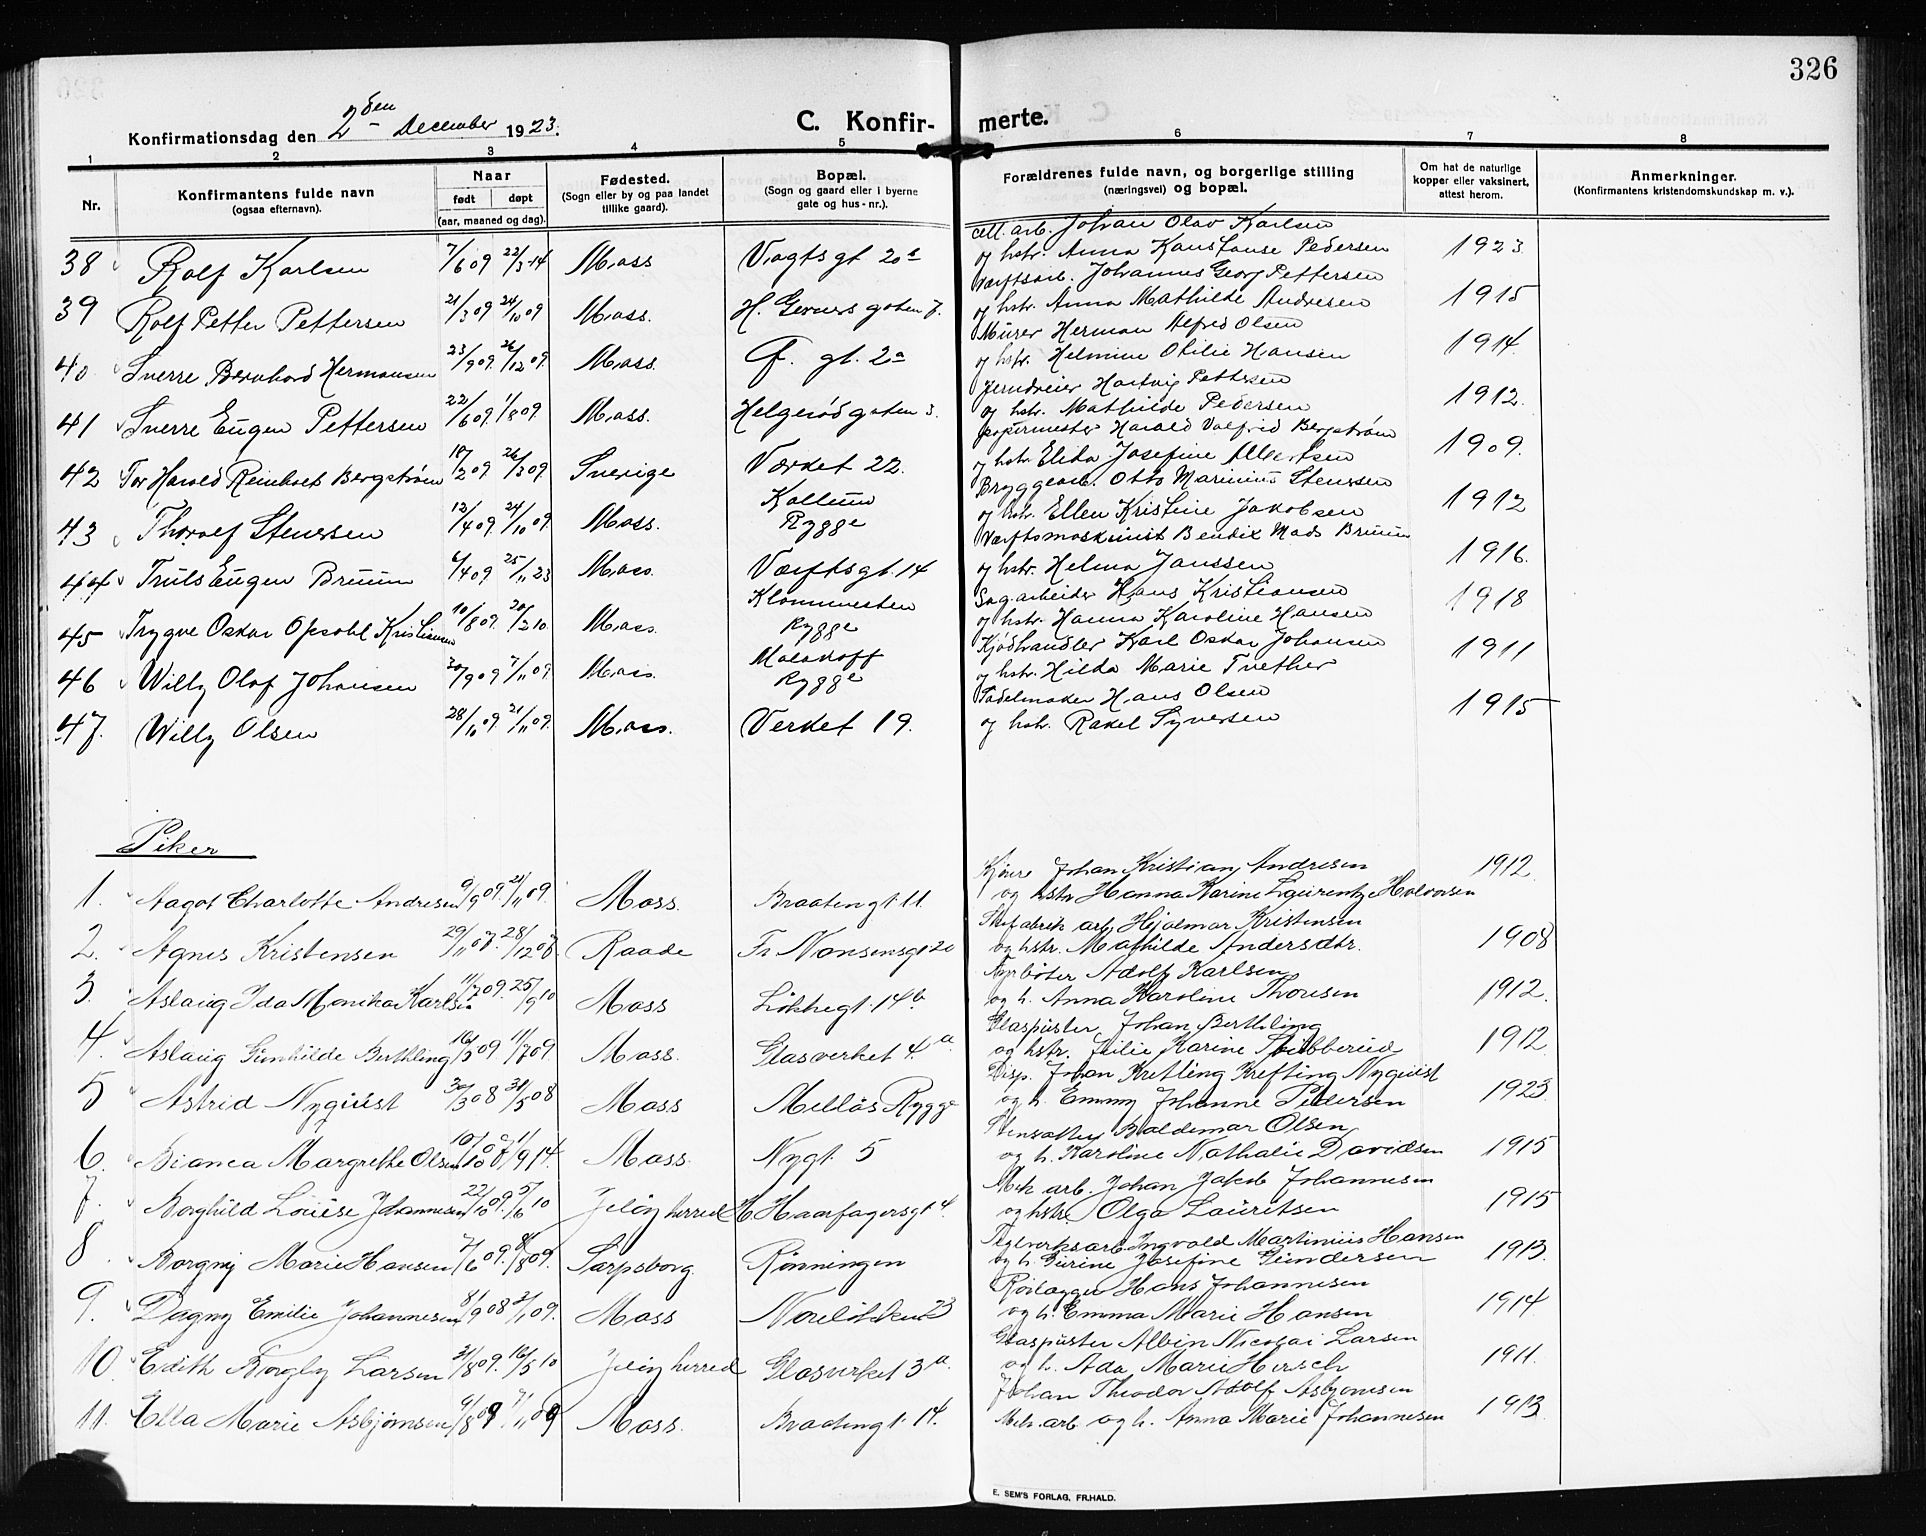 326
Konfirmationsdag den 2den December 1923.
C. Konfir- merte.
1 2 3 4 5 6 7 8
Nr.
Konfirmantens fulde navn
(ogsaa efternavn).
Naar
født døpt
(aar, maaned og dag).
Fødested.
(Sogn eller by og paa landet
tillike gaard).
Bopæl.
(Sogn og gaard eller i byerne
gate og hus-nr.).
Forældrenes fulde navn, og borgerlige stilling
(næringsvei) og bopæl.
Om hat de naturlige
kopper eller vaksinert,
attest herom.
Anmerkninger.
(Konfirmantens kristendomskundskap m. v.).
38 Rolf Karlsen 7/6 09 22/3 14 Moss Vogtsgt 20a
cell. arb. Johan Olav Karlsen
og hstr. Anna Konstanse Pedersen 1923
39 Rolf Petter Pettersen 21/3 09 24/10 09 Moss. H. Gerners gaten 7.
Værftsarb. Johannes Georg Pettersen
og hstr. Anna Mathilde Andresen 1915
40 Sverre Bernhard Hermansen 23/9 09. 26/12 09. Moss. F. gt. 2a
Murer Herman Alfred Olsen
og hstr. Helmine Otilie Hansen 1914.
41 Sverre Eugen Pettersen 22/6 09. 1/8 09 Moss. Helgerødgaten 3.
Jerndreier Hartvig Pettersen
og hstr. Mathilde Pedersen 1912.
42 Tor Harald Reinholt Bergstrøm 18/2 09 26/3 09. Sverige Værket 22.
papirmester Harald Valfrid Bergstrøm
og hstr. Elida Josefine Albertsen 1909.
43 Thoralf Stenersen 12/4 09. 24/10 09. Moss. Kallum
Rygge
Bryggearb. Otto Marinius Stenersen
og hstr. Ellen Kristine Jakobsen 1912
44 Truls Eugen Bruun 6/4 09 25/11 23 Moss. Værftsgt. 14
Værftsmaskinist Bendix Mads Bruun
og hstr. Helma Janssen 1916.
45 Trygve Oskar Opsahl Kristiansen 10/8 09. 20/2 10. Moss. Klommesten
Rygge
Sagarbeider Hans Kristiansen
og hstr. Hanna Karoline Hansen 1918
46 Willy Olaf Johansen 30/9 09 7/11 09. Moss. Malakoff
Rygge
Kjødhandler Karl Oskar Johansen
og hstr. Hilda Marie Tvether 1911
47. Willy Olsen 28/10 09. 21/11 09. Moss. Verket 19.
Sadelmaker Hans Olsen
og hstr. Rakel Syversen 1915
Piker
1. Aagot Charlotte Andresen 9/9 09. 21/11 09. Moss. Braatengt 11.
Kjører Johan Kristian Andresen
og hstr Hanna Karine Laurentze Halvorsen 1912.
2. Agnes Kristensen 29/11 07. 28/12 07. Raade Fr Nansensgt 20
Skofabrik arb. Hjalmar Kristensen
og hstr. Mathilde Andersdtr. 1908
3. Aslaug Ida Monika Karlsen 11/7 09. 25/9 10 Moss Løkkegt. 14b
Fyrbøter Adolf Karlsen
og h. Anna Karoline Thoresen 1912.
4. Aslaug Gunhilde Berthling 16/5 09. 11/7 09. Moss. Glasverket 4.a
Glaspuster Johan Berthling
og hstr. Julie Karine Stubberud 1912.
5 Astrid Nyquist 30/3 08 31/5 08 Moss Melløs Rygge
Disp. Johan Kretling Krefting Nyquist
og h. Emmy Johanne Pedersen 1923.
6. Bianca Margrethe Olsen 10/10 08 11/9 14. Moss. Nygt. 5
Stensætter Baldemar Olsen
og h. Karoline Nathalie Davidsen 1915
7. Borghild Louise Johannesen 22/10 09. 5/6 10 Jeløy herred H Haarfagersgt 4.
Mek arb. Johan Jakob Johannesen
og hstr Olga Lauritsen 1915
8. Borgny Marie Hansen 7/6 09. 8/8 09. Sarpsborg. Rønningen
Teglverksarb Ingvald Martinius Hansen
og h. Gurine Josefine Gundersen 1913.
9. Dagny Emilie Johannesen 8/9 08 3/1 09. Moss Noreløkken 23
Rørlægger Hans Johannesen
og h. Emma Marie Hansen 1914.
10. Edith Borgly Larsen 31/8 09. 16/5 10 Jeløy herred Glasverket 3a.
Glaspuster Albin Nicolai Larsen
og h. Ada Marie Hirsch 1911.
11. Ella Marie Asbjørnsen 9/8 09 7/11 09 Moss. Braatengt. 14.
Johan Theodor Adolf Asbjørnsen
Mek. arb og h. Anna Marie Johannesen 1913.
E. SEM'S FORLAG, FR.HALD.